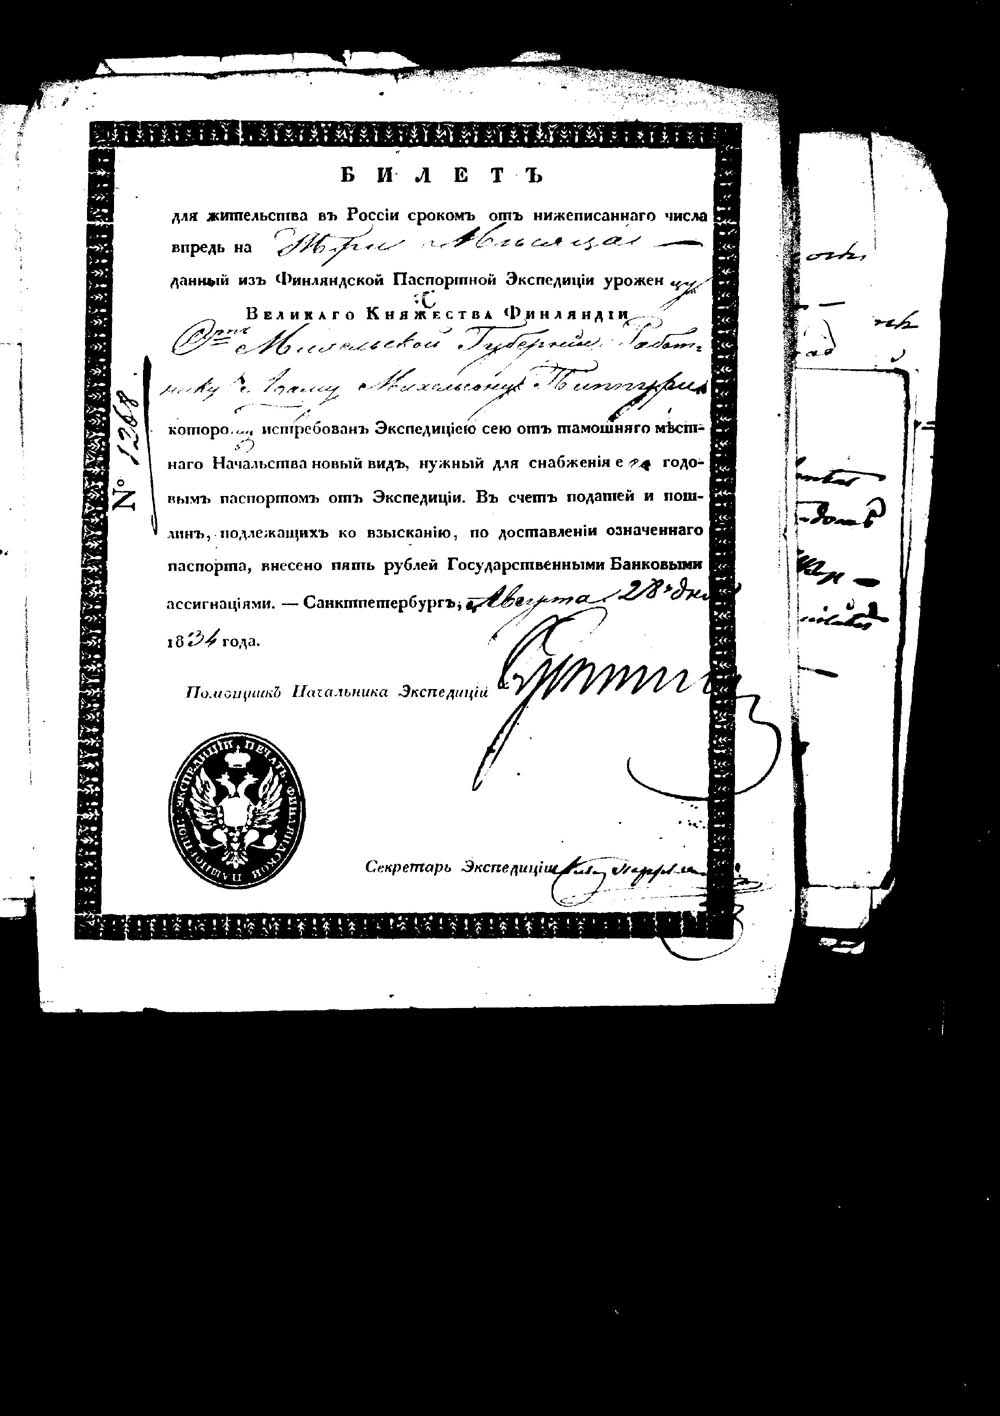 БИЛЕТЪ
для жительства въ Россіи срокомъ отъ нижеписаннаго числа
впредь на Три Мѣсяца —
данный изъ Финляндской Паспортной Экспедиціи урожен цу
Великаго Княжества Финляндіи
С:т Михельской Губерніи Работ=
нику Адаму Михельсону
которо истребованъ Экспедиціею сею отъ тамошняго мѣст=
наго Начальства новый видъ, нужный для снабженія е го годо-
вымъ паспортомъ отъ Экспедиціи. Въ счетъ податей и пош-
линъ, подлежащихъ ко взысканію, по доставленіи означеннаго
паспорта, внесено пять рублей Государственными Банковыми
ассигнаціями. — Санктпетербургъ, Августа 28 дня
1834 года.
Помощникъ Начальника Экспедиціи
Секретарь Экспедиціи
№ 1268
ПЕЧАТЬ ФИНЛЯНДСКОЙ ПАШПОРТНОЙ ЭКСПЕДИЦІИ